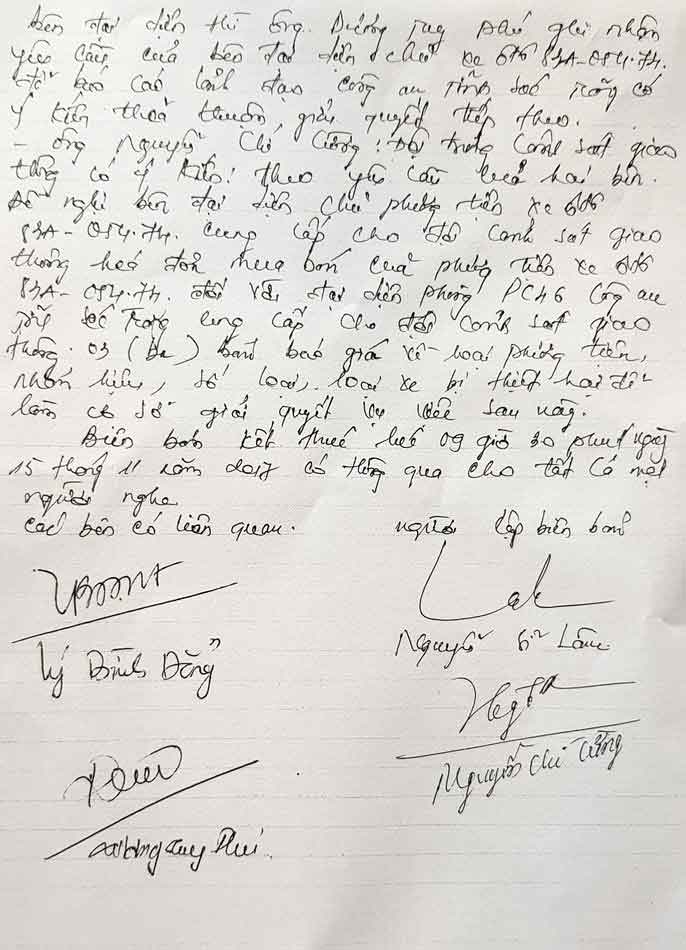 bên đại diện thì ông. Dương Huy Phú ghi nhận
yêu cầu của bên đại diện chủ xe ôtô 83A-054.74.
để báo cáo lãnh đạo công an tỉnh Sóc Trăng có
ý kiến thỏa thuận, giải quyết tiếp theo.
- Ông Nguyễn Chí Cường: Đội trưởng Cảnh sát giao
thông có ý kiến: theo yêu cầu của hai bên.
Đề nghị bên đại diện chủ phương tiện xe ôtô
83A-054.74. cung cấp cho đội cảnh sát giao
thông hoá đơn mua bán của phương tiện xe ôtô
83A-054.74. đối với đại diện phòng PC46 Công an
tỉnh Sóc Trăng cung cấp cho đội cảnh sát giao
thông 03 (ba) bảng báo giá về loại phương tiện,
nhãn hiệu, số loại, loại xe bị thiệt hại để
làm cơ sở giải quyết vụ việc sau này.
Biên bản kết thúc hồi 09 giờ 30 phút ngày
15 tháng 11 năm 2017 có thông qua cho tất cả mọi
người nghe
Các bên có liên quan. người lập biên bản
Lý Bình Đẳng Nguyễn Sĩ Lâm
Nguyễn Chí Cường
Dương Huy Phú.